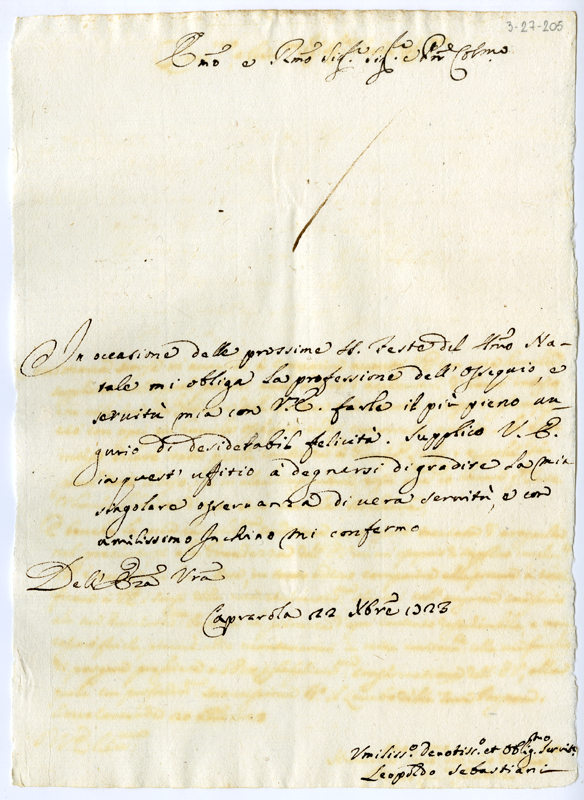 3-27-205
Emo e Rmo Sigr. Sigr. e Pne Colmo
In occasione delle prossime SS. Feste del Smo Na-
tale mi obliga la professione dell'ossequio, e
servitù mia con V.E. farle il più pieno au-
gurio di desiderabil felicità. Supplico V.E.
in quest'uffitio à degnarsi di gradire la mia
singolare osservanza di vera servitù, e con
umilissimo Inchino mi confermo
Dell'Eza Vra
Caprarola 22 Xbre 1723
Umiliss.o Devotiss.o et Oblig.mo Servit.e
Leopoldo Sebastiani